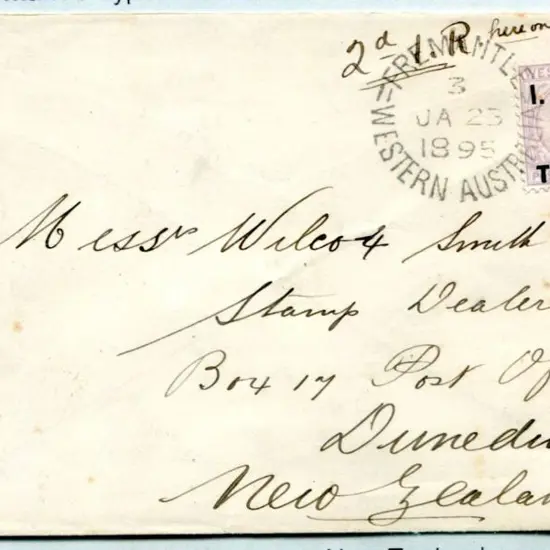 2d I. R here on
FREMANTLE
3
JA 23
1895
WESTERN AUSTRALIA
I.
T
Messrs Wilcox Smith
Stamp Dealer
Box 17 Post Of
Dunedin
New Zealan